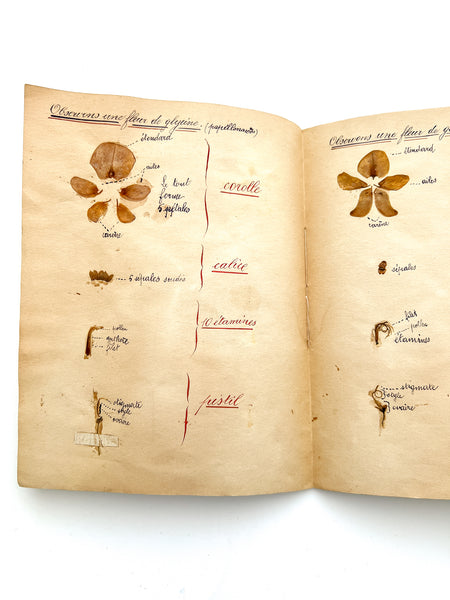 Observons une fleur de glycine. (papillonacée)
étendard
ailes
le tout
forme
5 pétales
carène
corolle
5 sépales soudés
calice
pollen
anthère
filet
10 étamines
stigmate
style
ovaire
pistil
Observons une fleur de g
étendard
ailes
carène
sépales
filet
pollen
étamines
stigmate
style
ovaire